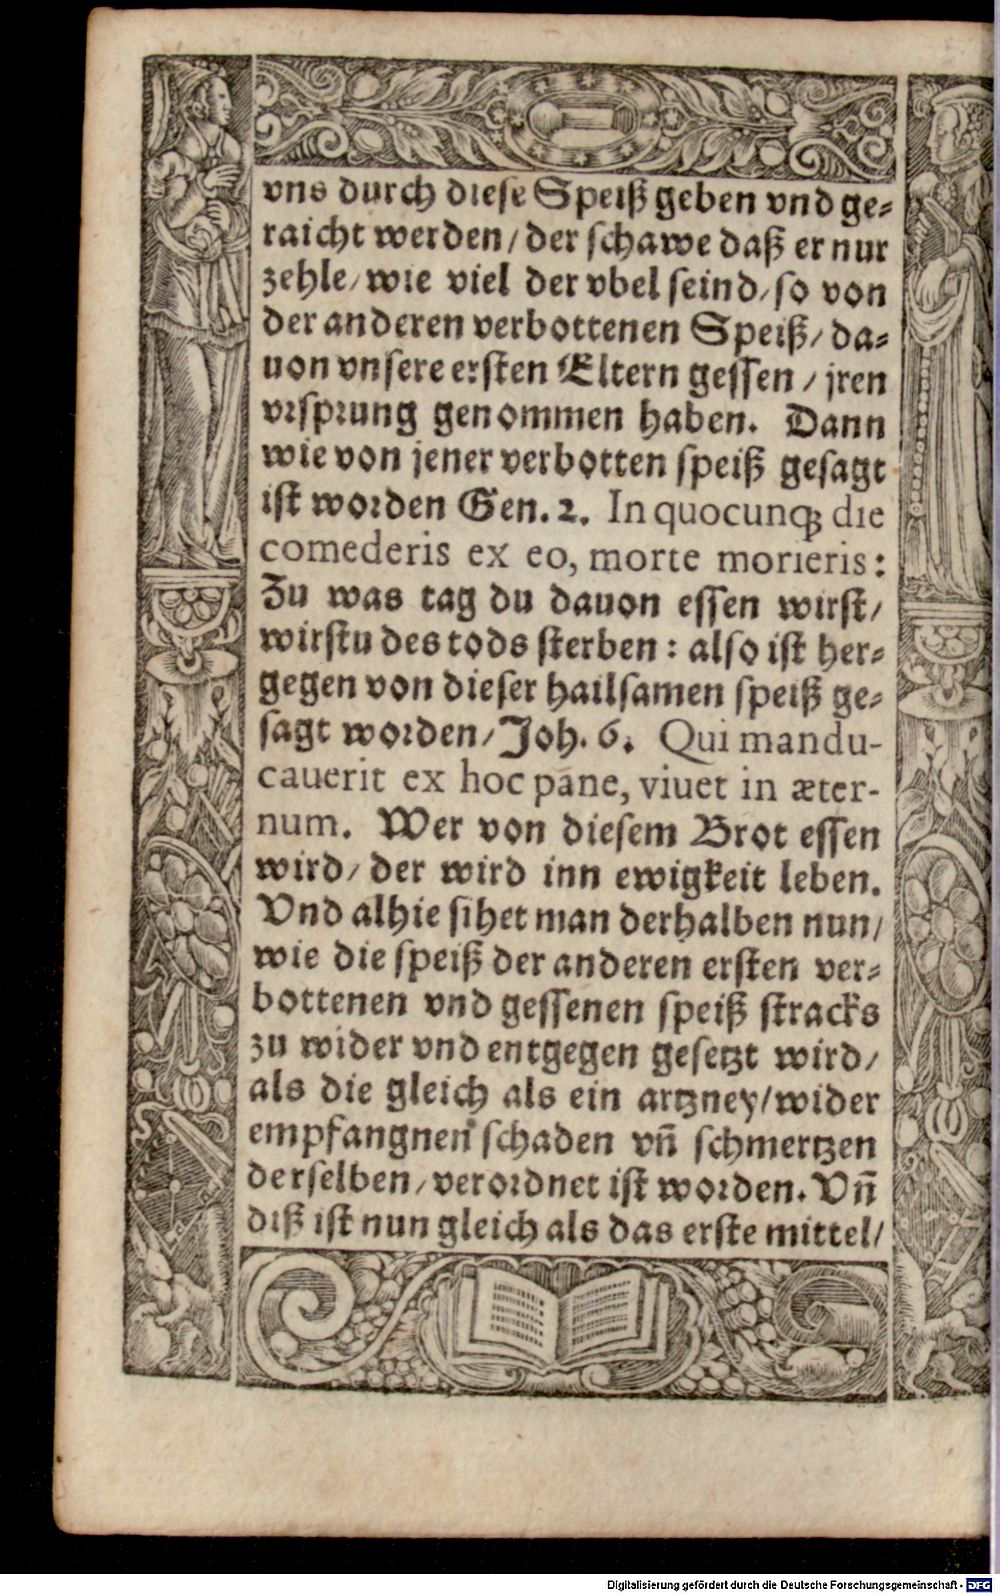 vns durch diese Speiß geben vnd ge⸗
raicht werden / der schawe daß er nur
zehle / wie viel der vbel seind / so von
der anderen verbottenen Speiß / da⸗
uon vnsere ersten Eltern gessen / jren
vrsprung genommen haben. Dann
wie von jener verbotten speiß gesagt
ist worden Gen. 2. In quocunqꝫ die
comederis ex eo, morte morieris:
Zu was tag du dauon essen wirst /
wirstu des tods sterben : also ist her⸗
gegen von dieser hailsamen speiß ge⸗
sagt worden / Joh. 6. Qui mandu-
cauerit ex hoc pane, viuet in æter-
num. Wer von diesem Brot essen
wird / der wird inn ewigkeit leben.
Vnd alhie sihet man derhalben nun /
wie die speiß der anderen ersten ver⸗
bottenen vnd gessenen speiß stracks
zu wider vnd entgegen gesetzt wird /
als die gleich als ein artzney / wider
empfangnen schaden vñ schmertzen
derselben / verordnet ist worden. Vñ
diß ist nun gleich als das erste mittel /
Digitalisierung gefördert durch die Deutsche Forschungsgemeinschaft - DFG